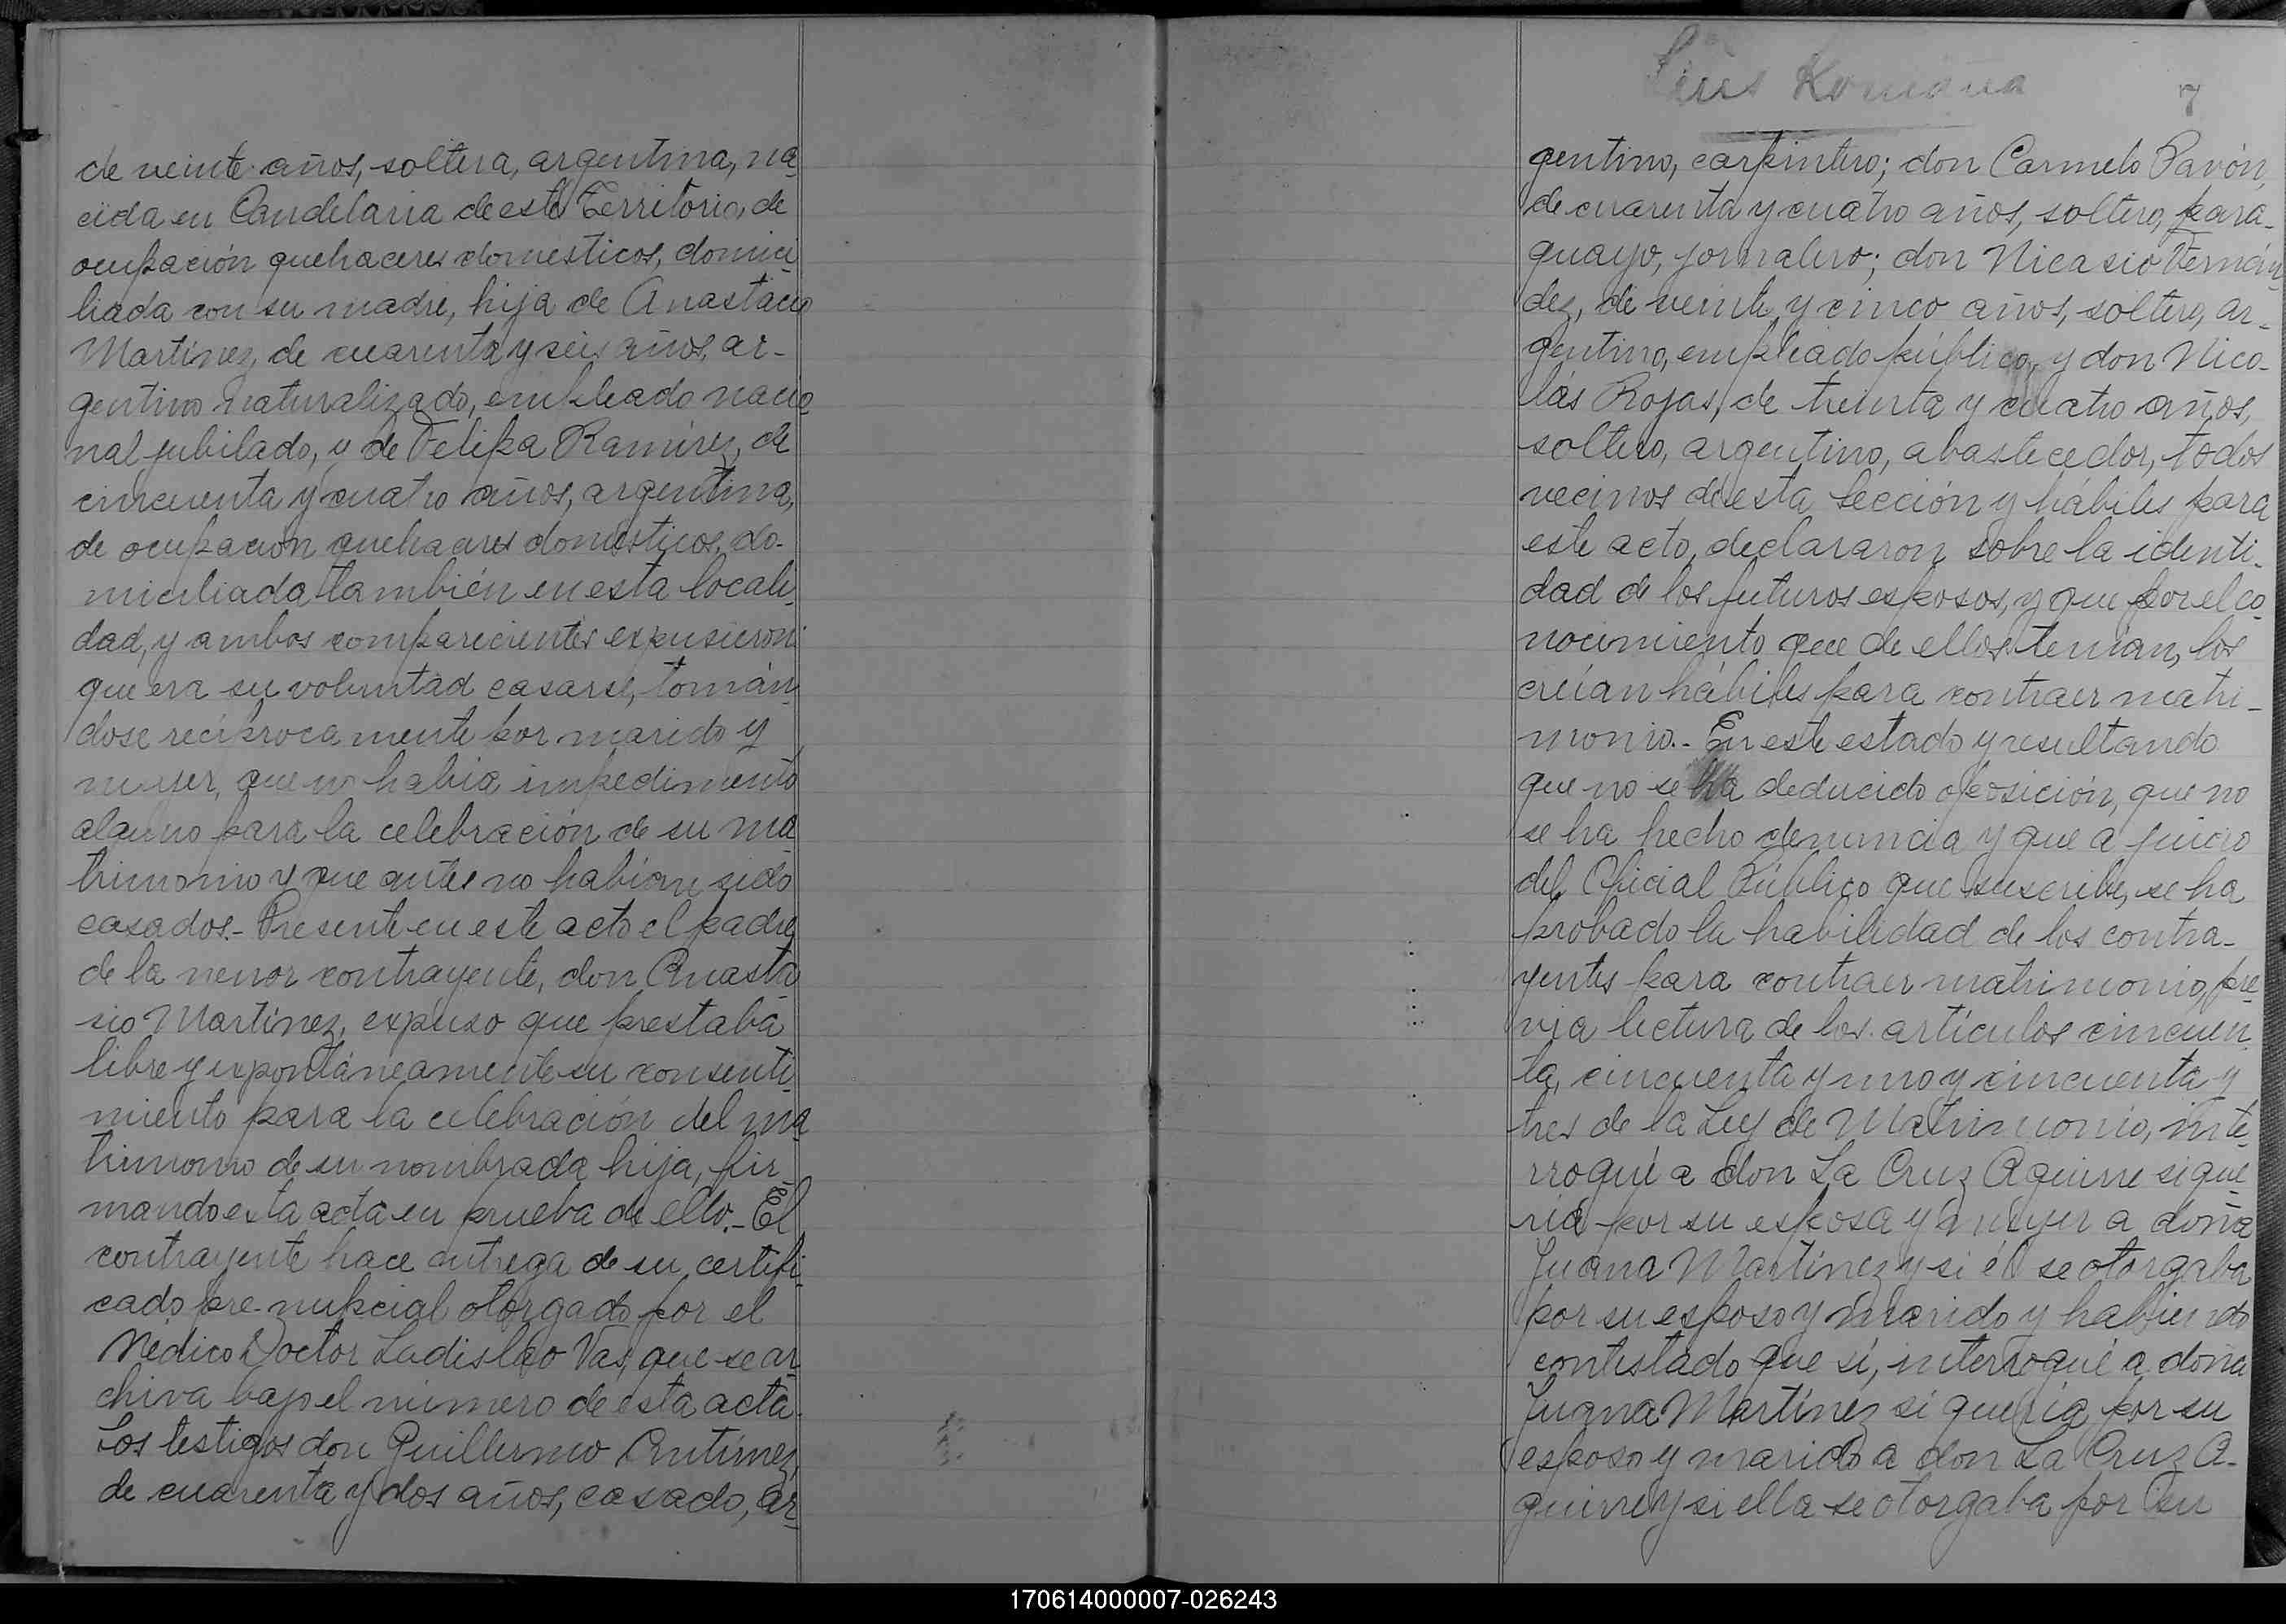 de veinte años, soltera, argentina, na
cida en Candelaria de este Territorio, de
ocupación quehaceres domésticos, domici
liada con su madre, hija de Anastacio
Martínez, de cuarenta y seis años, ar-
gentino naturalizado, empleado nacio
nal jubilado, y de Felipa Ramírez, de
cincuenta y cuatro años, argentina,
de ocupación quehaceres domésticos, do-
miciliada también en esta locali-
dad, y ambos comparecientes expusieron
que era su voluntad casarse, tomán
dose recíprocamente por marido y
mujer, que no había impedimento
alguno para la celebración de su ma
trimonio y que antes no habían sido
casados.- Presente en este acto el padre
de la menor contrayente, don Anasta
sio Martínez, expuso que prestaba
libre y expontáneamente su consenti
miento para la celebración del ma
trimonio de su nombrada hija, fir-
mando esta acta en prueba de ello.- El
contrayente hace entrega de su certifi-
cado pre-nupcial otorgado por el
Médico Doctor Ladislao Vas, que se ar
chiva bajo el número de esta acta.
Los testigos don Guillermo Antúnez,
de cuarenta y dos años, casado, ar-
Luis Romaña
7
gentino, carpintero; don Carmelo Pavón,
de cuarenta y cuatro años, soltero, para-
guayo, jornalero; don Nicasio Fernán
dez, de veinte y cinco años, soltero, ar-
gentino, empleado público, y don Nico-
lás Rojas, de treinta y cuatro años,
soltero, argentino, abastecedor, todos
vecinos de esta Sección y hábiles para
este acto, declararon sobre la identi-
dad de los futuros esposos, y que por el co
nocimiento que de ellos tenían, los
creían hábiles para contraer matri-
monio.- En este estado y resultando
que no se ha deducido oposición, que no
se ha hecho denuncia y que a juicio
del Oficial Público que suscribe, se ha
probado la habilidad de los contra-
yentes para contraer matrimonio, pre
via lectura de los artículos cincuen
ta, cincuenta y uno y cincuenta y
tres de la Ley de Matrimonio, inte-
rrogué a don La Cruz Aguirre si que
ría por su esposa y mujer a doña
Juana Martínez y si él se otorgaba
por su esposo y marido y habiendo
contestado que sí, interrogué a doña
Juana Martínez si quería por su
esposo y marido a don La Cruz A-
guirre y si ella se otorgaba por su
170614000007-026243